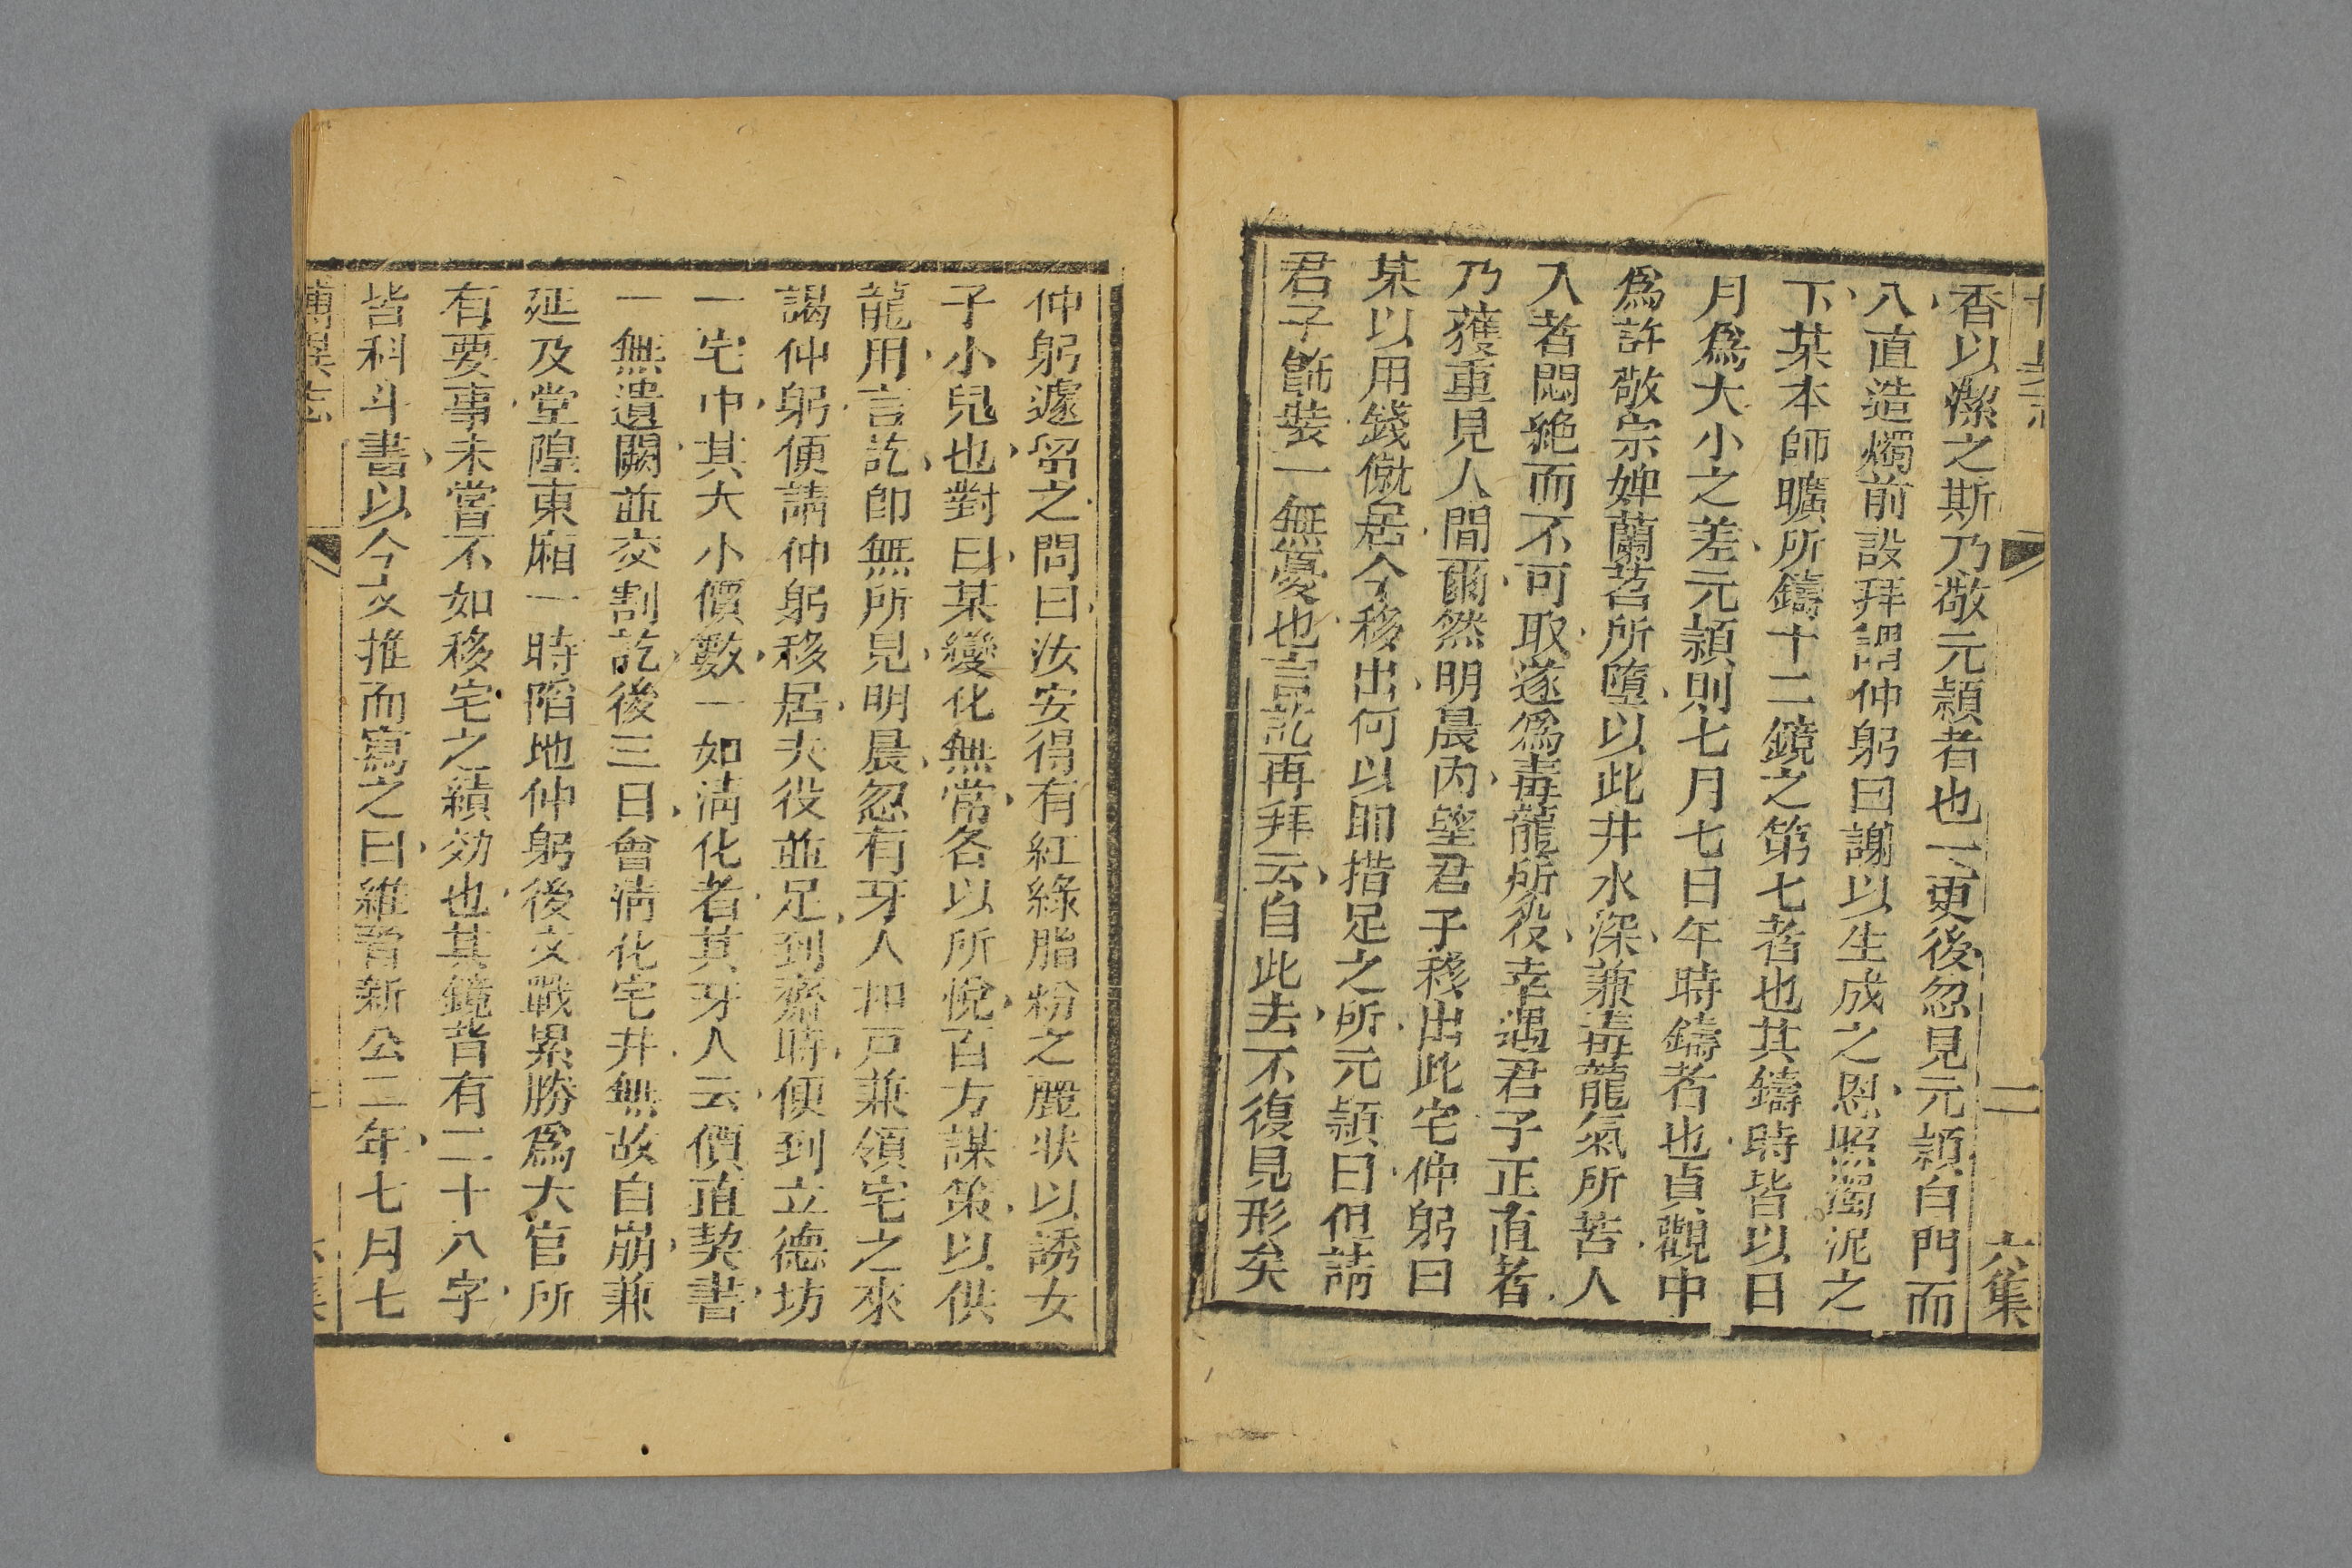 二 六集
香以潔之斯乃敬元頴者也一更後忽見元頴自門而
八直造燭前設拜謂仲躬曰謝以生成之恩照濁泥之
下某本師曠所鑄十二鏡之第七者也其鑄時皆以日
月爲大小之差元頴則七月七日午時鑄者也貞觀中
爲許敬宗婢蘭苕所墮以此井水深兼毒龍氣所苦人
入者悶絶而不可取遂爲毒龍所役幸遇君子正直者
乃獲重見人間爾然明晨內望君子移出此宅仲躬曰
某以用錢僦居今移出何以即措足之所元頴曰但請
君子飾裝一無憂也言訖再拜云自此去不復見形矣
仲躬遽留之問曰汝安得有紅綠脂粉之麗狀以誘女
子小兒也對曰某變化無常各以所悅百方謀策以供
龍用言訖卽無所見明晨忽有牙人扣戸兼領宅之來
謁仲躬便請仲躬移居夫役並足到齋時便到立德坊
一宅中其大小價數一如淸化者其牙人云價直契書
一無遺闕並交割訖後三日會淸化宅井無故自崩兼
延及堂隍東廂一時陷地仲躬後文戰累勝爲大官所
有要事未嘗不如移宅之績効也其鏡背有二十八字
皆科斗書以今文推而寫之曰維晉新公二年七月七
博異志